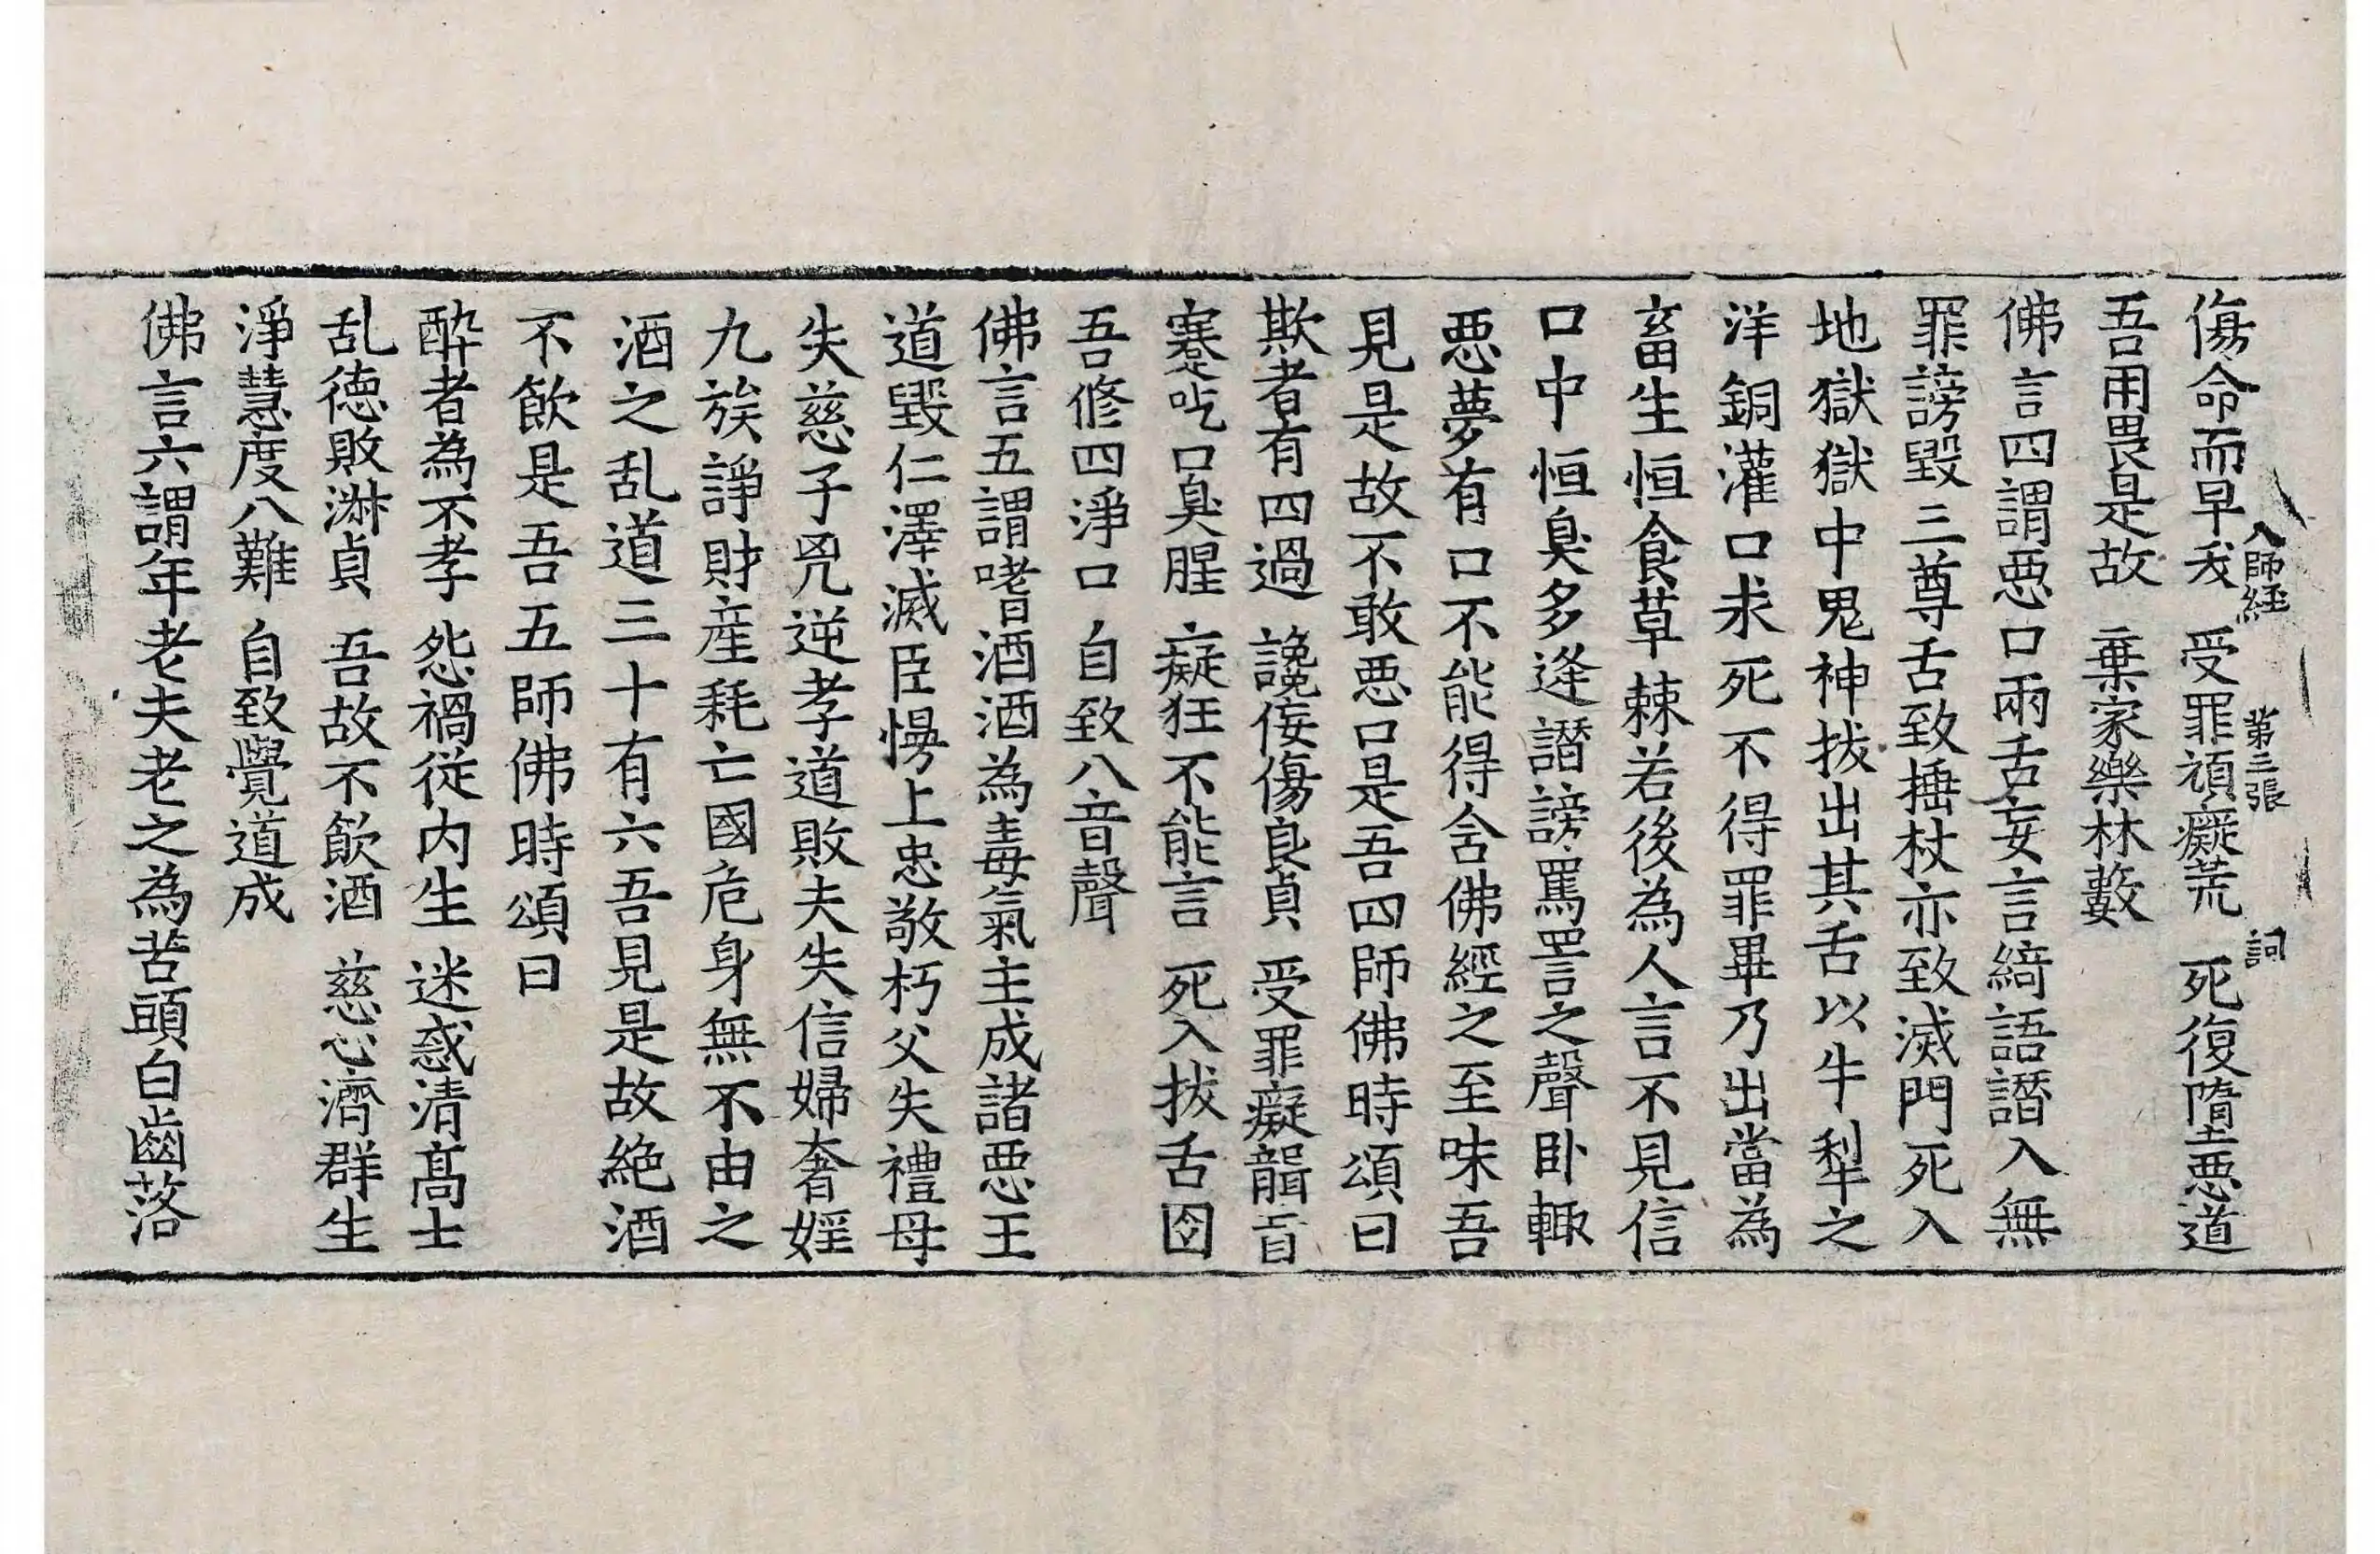 傷命而早夭　受罪頑癡荒　死復墮惡道
八師經　第三張　詞
吾用畏是故　棄家樂林藪
佛言四謂惡口兩舌妄言綺語譖入無
罪謗毀三尊舌致捶杖亦致滅門死入
地獄獄中鬼神拔出其舌以牛犁之
洋銅灌口求死不得罪畢乃出當為
畜生恒食草棘若後為人言不見信
口中恒臭多逢譖謗罵詈之聲卧輙
惡夢有口不能得舍佛經之至味吾
見是故不敢惡口是吾四師佛時頌曰
欺者有四過　讒佞傷良貞　受罪癡聾盲
蹇吃口臭腥　癡狂不能言　死入拔舌囹
吾修四淨口　自致八音聲
佛言五謂嗜酒酒為毒氣主成諸惡王
道毀仁澤滅臣慢上忠敬朽父失禮母
失慈子兇逆孝道敗夫失信婦奢婬
九族諍財産耗亡國危身無不由之
酒之乱道三十有六吾見是故絶酒
不飲是吾五師佛時頌曰
醉者為不孝　怨禍從内生　迷惑清髙士
乱德敗淋貞　吾故不飲酒　慈心濟群生
淨慧度八難　自致覺道成
佛言六謂年老夫老之為苦頭白齒落